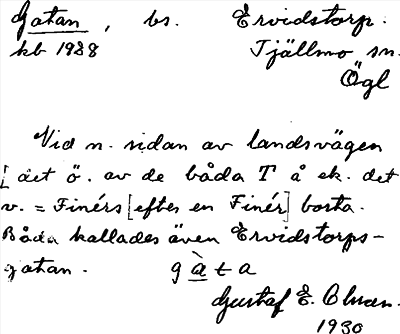 Gatan, bs. Ervidstorp.
kb 1988 Tjällmo sn.
Ögl
Vid n. sidan av landsvägen
[det ö. av de båda T å ek. det
v. = Finérs [efter en Finér] borta.
Båda kallades även Ervidstorps-
gatan. g à t a
Gustaf E. Olman.
1930